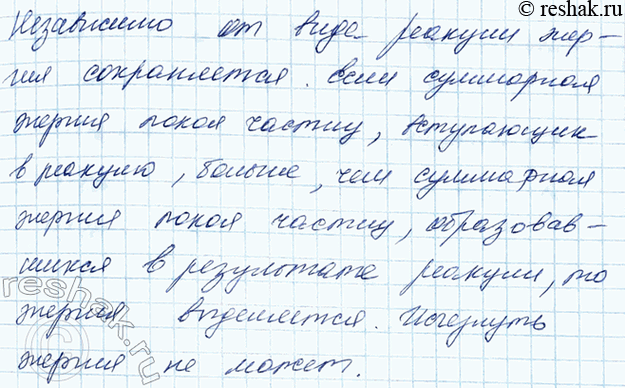 © reshak.ru
Независимо от вида реакции энер-
гия сохраняется. Если суммарная
энергия покоя частиц, вступающих
в реакцию, больше, чем суммарная
энергия покоя частиц, образовав-
шихся в результате реакции, то
энергия выделяется. Исчезнуть
энергия не может.
reshak.ru